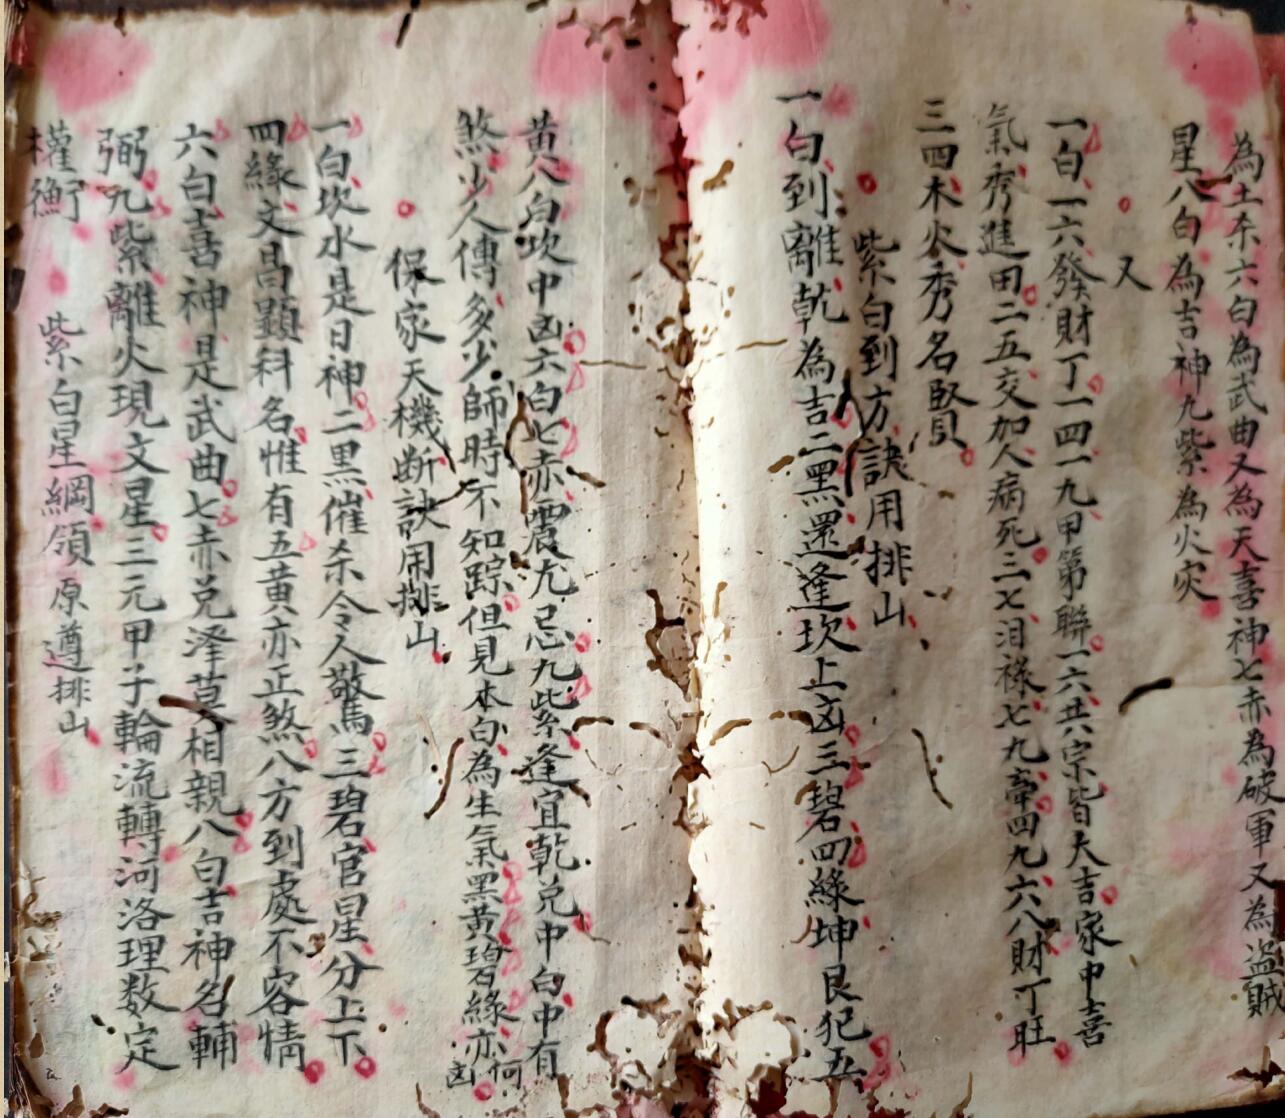 為土杀六白為武曲又為天喜神七赤為破軍又為盗賊
星八白為吉神九紫為火灾
又
一白一六發財丁一四一九甲第聯一六共宗皆大吉家中喜
氣秀進田二五交加人病死三七泪祿七九牽四九六八財丁旺
三四木火秀名賢
紫白到方訣用排山
一白到離乾為吉二黑還逢坎上凶三碧四緣坤艮犯五
黄八白坎中凶六白七赤震九忌九紫逢宜乾兑中白中有
煞少人傳多少師時不知踪但見本白為生氣黑黄碧緣亦何凶
保家天機断訣用排山
一白坎水是日神二黑催杀令人驚三碧官星分上下
四緣文昌顯科名惟有五黄亦正煞八方到處不容情
六白喜神是武曲七赤兑泽莫相親八白吉神名輔
弼九紫離火現文星三元甲子輪流轉河洛理数定
權衡
紫白星綱領原遵排山